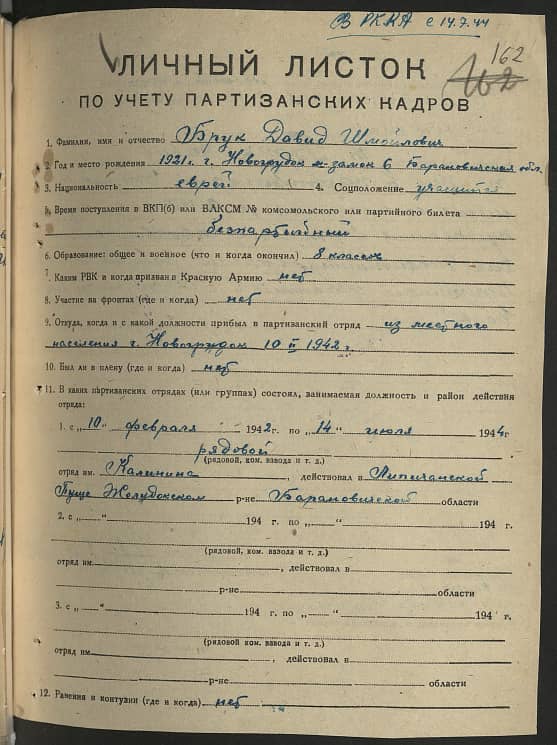 В РККА с 14.7.44
162
ЛИЧНЫЙ ЛИСТОК
ПО УЧЕТУ ПАРТИЗАНСКИХ КАДРОВ
1. Фамилия, имя и отчество Брук Давид Шмойлович
2. Год и место рождения 1921 г. г. Новогрудок м-замок 6 Барановичская обл.
3. Национальность еврей 4. Соцположение учащийся
5. Время поступления в ВКП(б) или ВЛКСМ № комсомольского или партийного билета
безпартийный
6. Образование: общее и военное (что и когда окончил) 8 классов
7. Каким РВК и когда призван в Красную Армию нет
8. Участие на фронтах (где и когда) нет
9. Откуда, когда и с какой должности прибыл в партизанский отряд из местного
населения г. Новогрудок 10 II 1942 г.
10. Был ли в плену (где и когда) нет
11. В каких партизанских отрядах (или группах) состоял, занимаемая должность и район действия
отряда:
1. с „10“ февраля 1942 г. по „14“ июля 1944 г
рядовой
(рядовой, ком. взвода и т. д.)
отряд им. Калинина, действовал в Липичанской
Пуще Желудокском р-не Барановичской области
2. с „ “ 194 г. по „ “ 194 г.
(рядовой, ком. взвода и т. д.)
отряд им. , действовал в
р-не области
3. с „ “ 194 г. по „ “ 194 г.
(рядовой, ком. взвода и т. д.)
отряд им. , действовал в
р-не области
12. Ранения и контузии (где и когда) нет